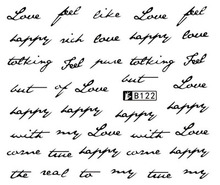 Love feel like Love feel
happy rich love happy love
talking Feel pure talking Feel
but of Love but Love
B122
happy happy happy happy
with my Love with my Love
come true happy come true happy
the real to my the my